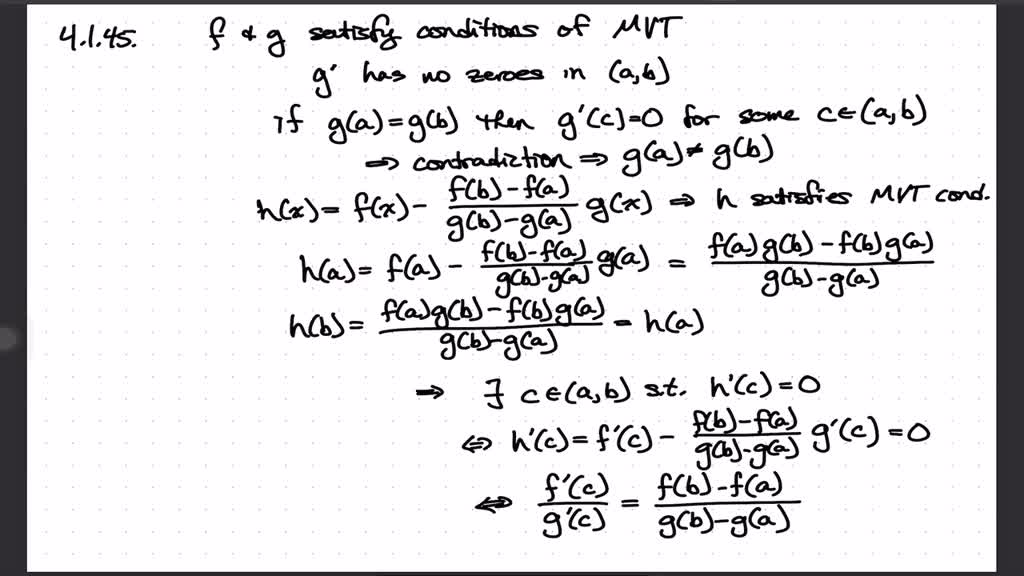 4.1.45. f & g satisfy conditions of MVT
g' has no zeroes in (a,b)
if g(a)=g(b) then g'(c)=0 for some c∈(a,b)
⇒ contradiction ⇒ g(a)≠g(b)
h(x)= f(x)- (f(b)-f(a))/(g(b)-g(a)) g(x) ⇒ h satisfies MVT cond.
h(a)= f(a)- (f(b)-f(a))/(g(b)-g(a)) g(a) = (f(a)g(b)-f(b)g(a))/(g(b)-g(a))
h(b)= (f(a)g(b)-f(b)g(a))/(g(b)-g(a)) = h(a)
⇒ ∃ c∈(a,b) s.t. h'(c)=0
⇔ h'(c)=f'(c)- (f(b)-f(a))/(g(b)-g(a)) g'(c)=0
⇔ f'(c)/g'(c) = (f(b)-f(a))/(g(b)-g(a))